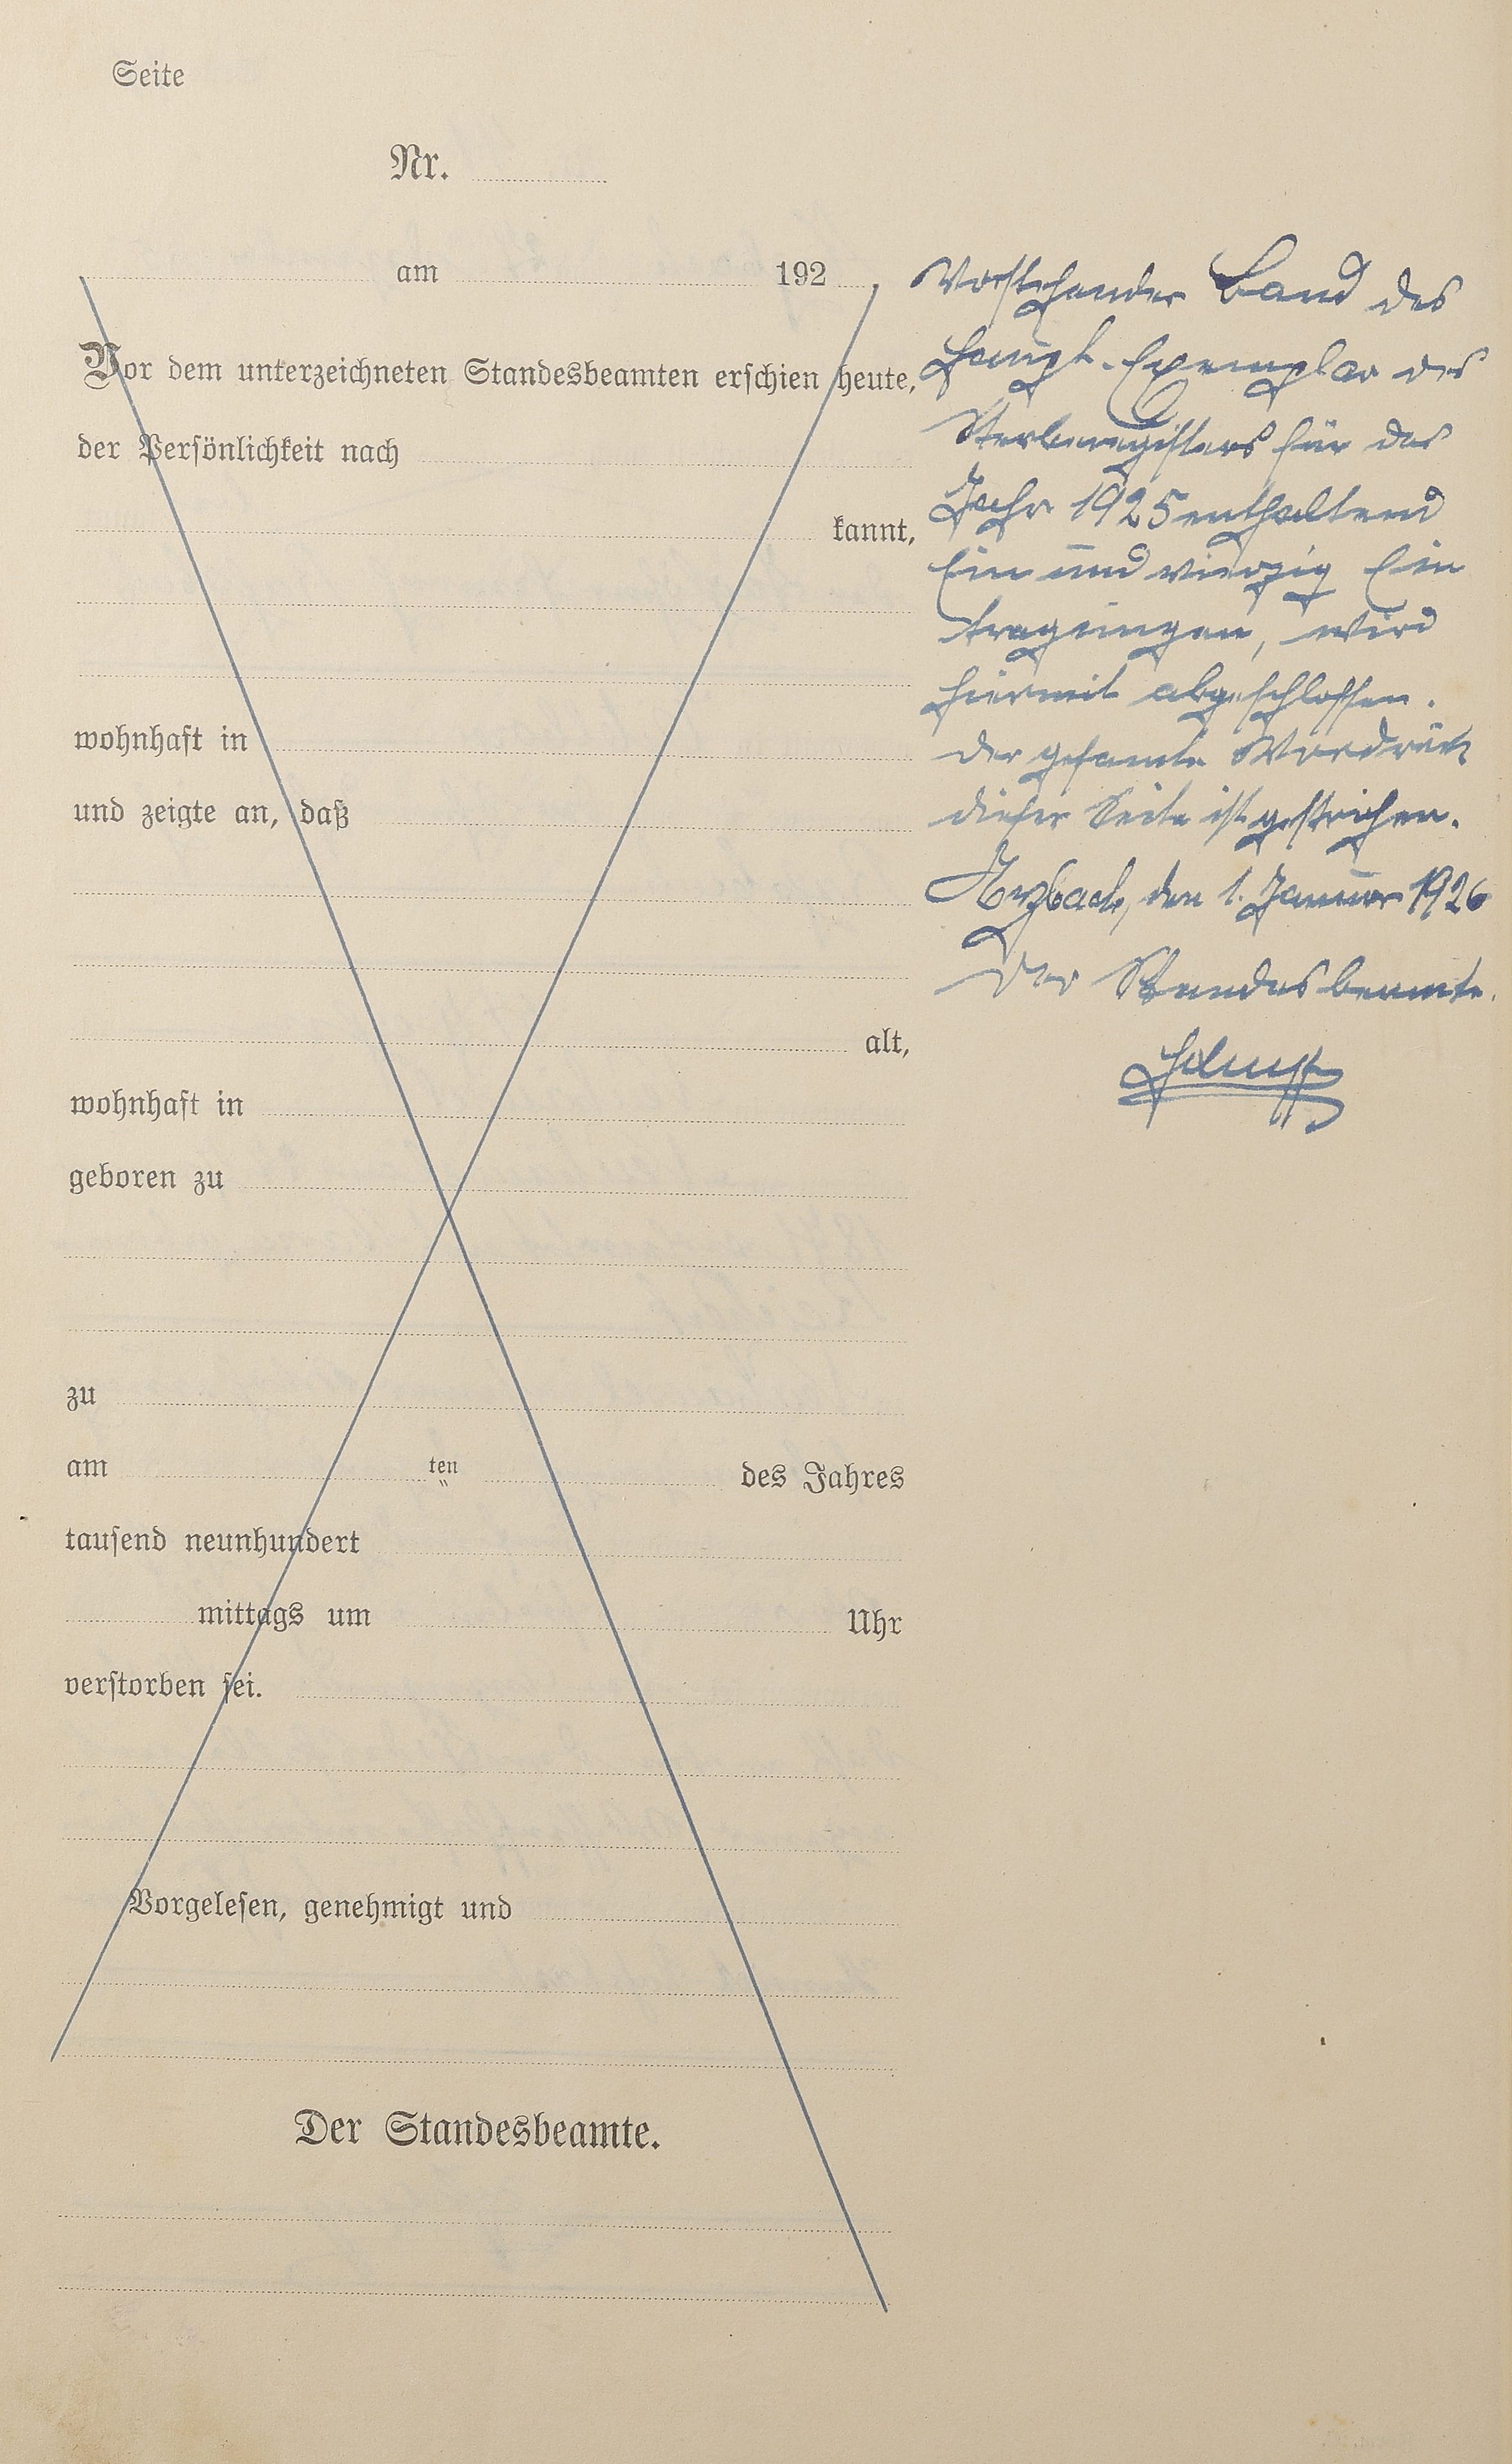 Seite
Nr.
am 192
Vor dem unterzeichneten Standesbeamten erschien heute,
der Persönlichkeit nach
kannt,
wohnhaft in
und zeigte an, daß
alt,
wohnhaft in
geboren zu
zu
am ten des Jahres
tausend neunhundert
mittags um Uhr
verstorben sei.
Vorgelesen, genehmigt und
Der Standesbeamte.
Vorstehender Band des
Haupt-Exemplar des
Sterberegisters für das
Jahr 1925 enthaltend
Ein und vierzig Ein
tragungen, wird
hiermit abgeschlossen.
Der gesamte Vordruck
dieser Seite ist gestrichen.
den 1. Januar 1926
Der Standesbeamte.